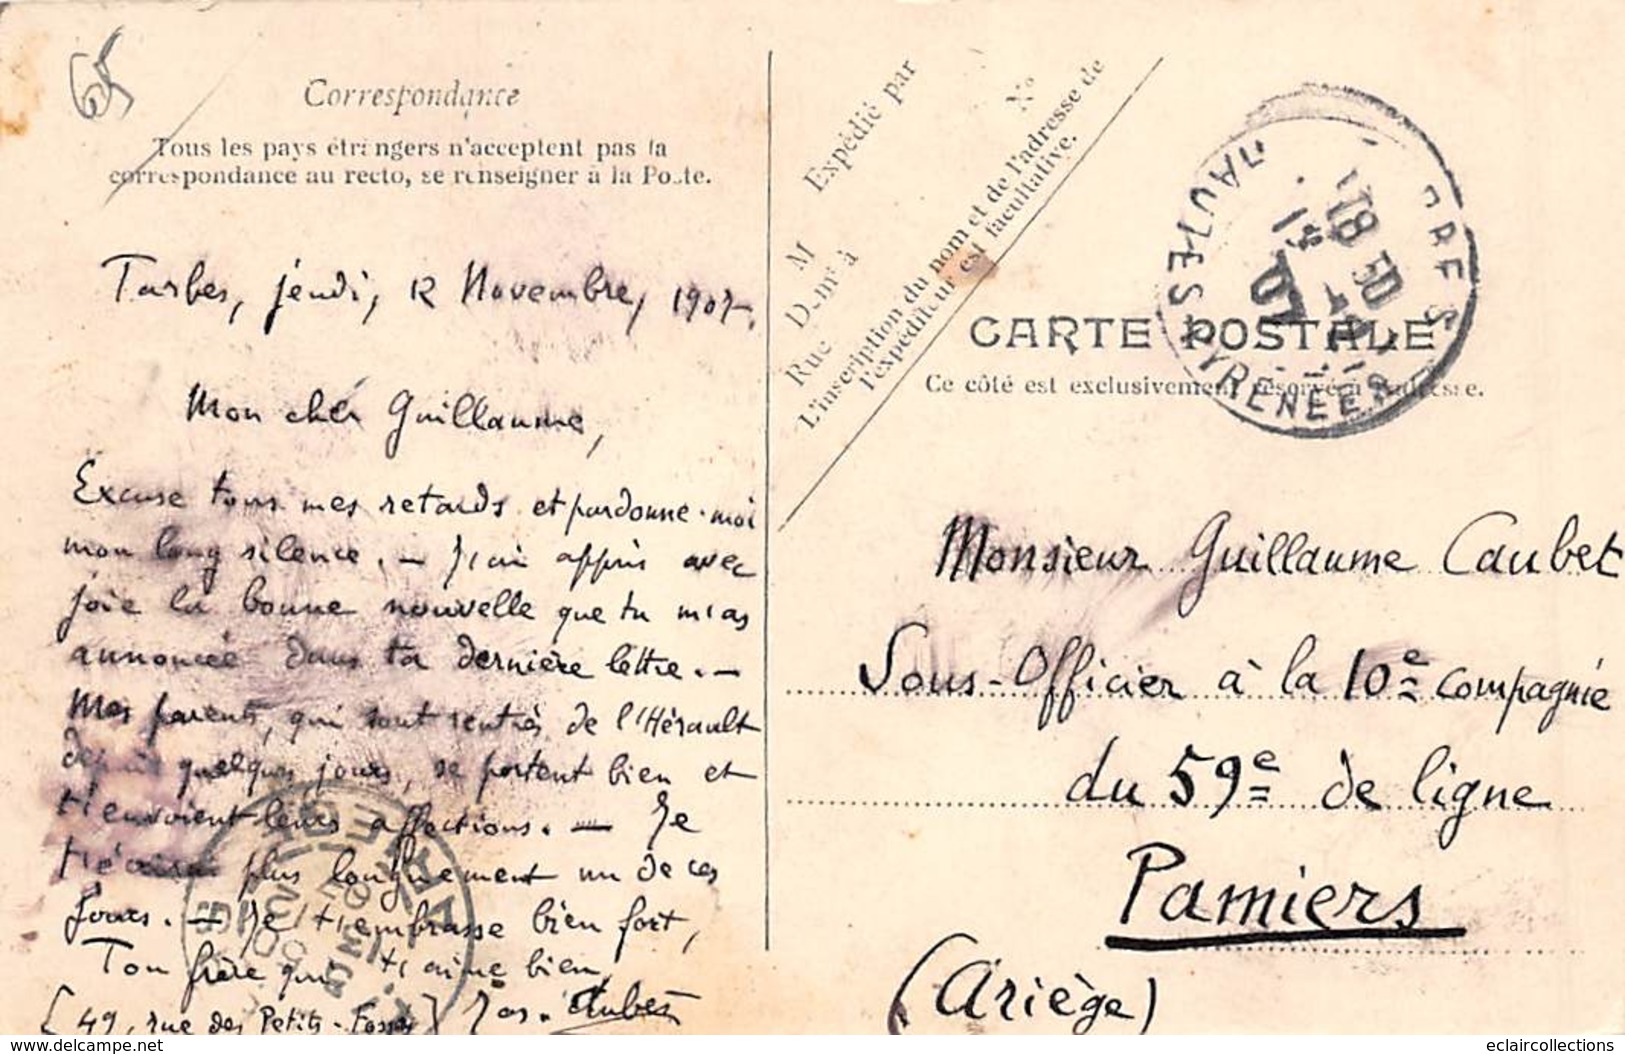 65
Correspondance
Tous les pays étrangers n'acceptent pas la
correspondance au recto, se renseigner à la Poste.
Tarbes, jeudi, 12 Novembre, 1907.
Mon cher Guillaume,
Excuse tous mes retards et pardonne-moi
mon long silence. — J'ai appris avec
joie la bonne nouvelle que tu m'as
annoncée dans ta dernière lettre. —
Mes parents, qui sont rentrés de l'Hérault
depuis quelques jours, se portent bien et
t'envoient leurs affections. — Je
t'écrirai plus longuement un de ces
jours. — Je t'embrasse bien fort,
Ton frère qui t'aime bien,
[49, rue des Petits-Fossés]
Expédié par
N°
M
Demt à
Rue
L'inscription du nom et de l'adresse de
l'expéditeur est facultative.
CARTE POSTALE
Ce côté est exclusivement réservé à l'adresse.
HAUTES PYRENEES
18 50
07
Monsieur Guillaume Caubet
Sous-Officier à la 10e compagnie
du 59e de ligne
Pamiers
(Ariège)
https://www.delcampe.net
eclaircollections